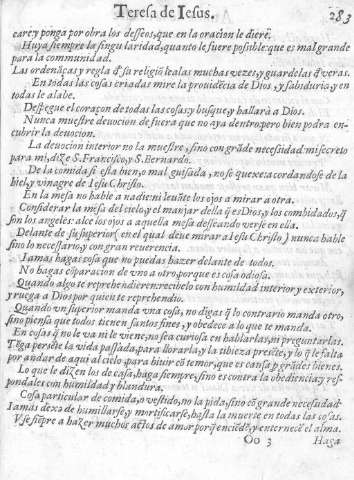 Teresa de Iesus. 283
care, y ponga por obra los desseos, que en la oracion le diere.
Huya siempre la singularidad, quanto le fuere possible: que es mal grande
para la comunidad.
Las ordenãças y regla đ su religiõ lealas muchas vezes, y guardelas đ veras.
En todas las cosas criadas mire la prouidẽcia de Dios, y sabiduria, y en
todas le alabe.
Despegue el coraçon de todas las cosas: y busque, y hallarà a Dios.
Nunca muestre deuocion de fuera que no aya dentro: pero bien podra en-
cubrir la deuocion.
La deuocion interior no la muestre, sino con grãde necessidad mi secreto
para mi, dize S. Francisco, y S. Bernardo.
De la comida si està bien, o mal guisada, no se quexe: acordandose de la
hiel, y vinagre de Iesu Christo.
En la mesa no hable a nadie: ni leuãte los ojos a mirar a otra.
Considerar la mesa del cielo, y el manjar della q̃ es Dios, y los combidados, q̃
son los angeles: alce los ojos a aquella mesa desseando verse en ella.
Delante de su superior (en el qual deue mirar a Iesu Christo) nunca hable
sino lo necessario, y con gran reuerencia.
Iamas hagas cosa que no puedas hazer delante de todos.
No hagas cõparacion de vno a otro, porque es cosa odiosa.
Quando algo te reprehendieren: recibelo con humildad interior, y exterior,
y ruega a Dios por quien te reprehendio.
Quando vn superior manda vna cosa, no digas q̃ lo contrario manda otro,
sino piensa que todos tienen santos fines, y obedece a lo que te manda.
En cosas q̃ no le va ni le viene; no sea curiosa en hablarlas, ni preguntarlas.
Tẽga presẽte la vida passada, para llorarla, y la tibieza presẽte, y lo q̃ le falta
por andar de aqui al cielo: para biuir cõ temor, que es causa đ grãdes bienes.
Lo que le dizen los de casa, haga siempre, sino es contra la obediencia, y res-
pondales con humildad y blandura.
Cosa particular de comida, o vestido, no la pida, sino cõ grande necessidad
Iamas dexe de humillarse, y mortificarse, hasta la muerte en todas las cosas.
Vse siẽpre a hazer muchos actos de amor porq̃ enciẽdẽ, y enternecẽ el alma.
Oo 3 Haga